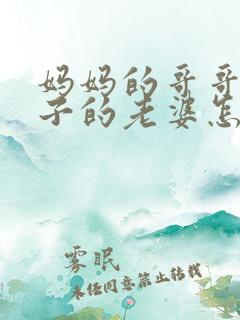 妈妈的哥哥
子的老婆怎
雾眠
未经同意禁止转载